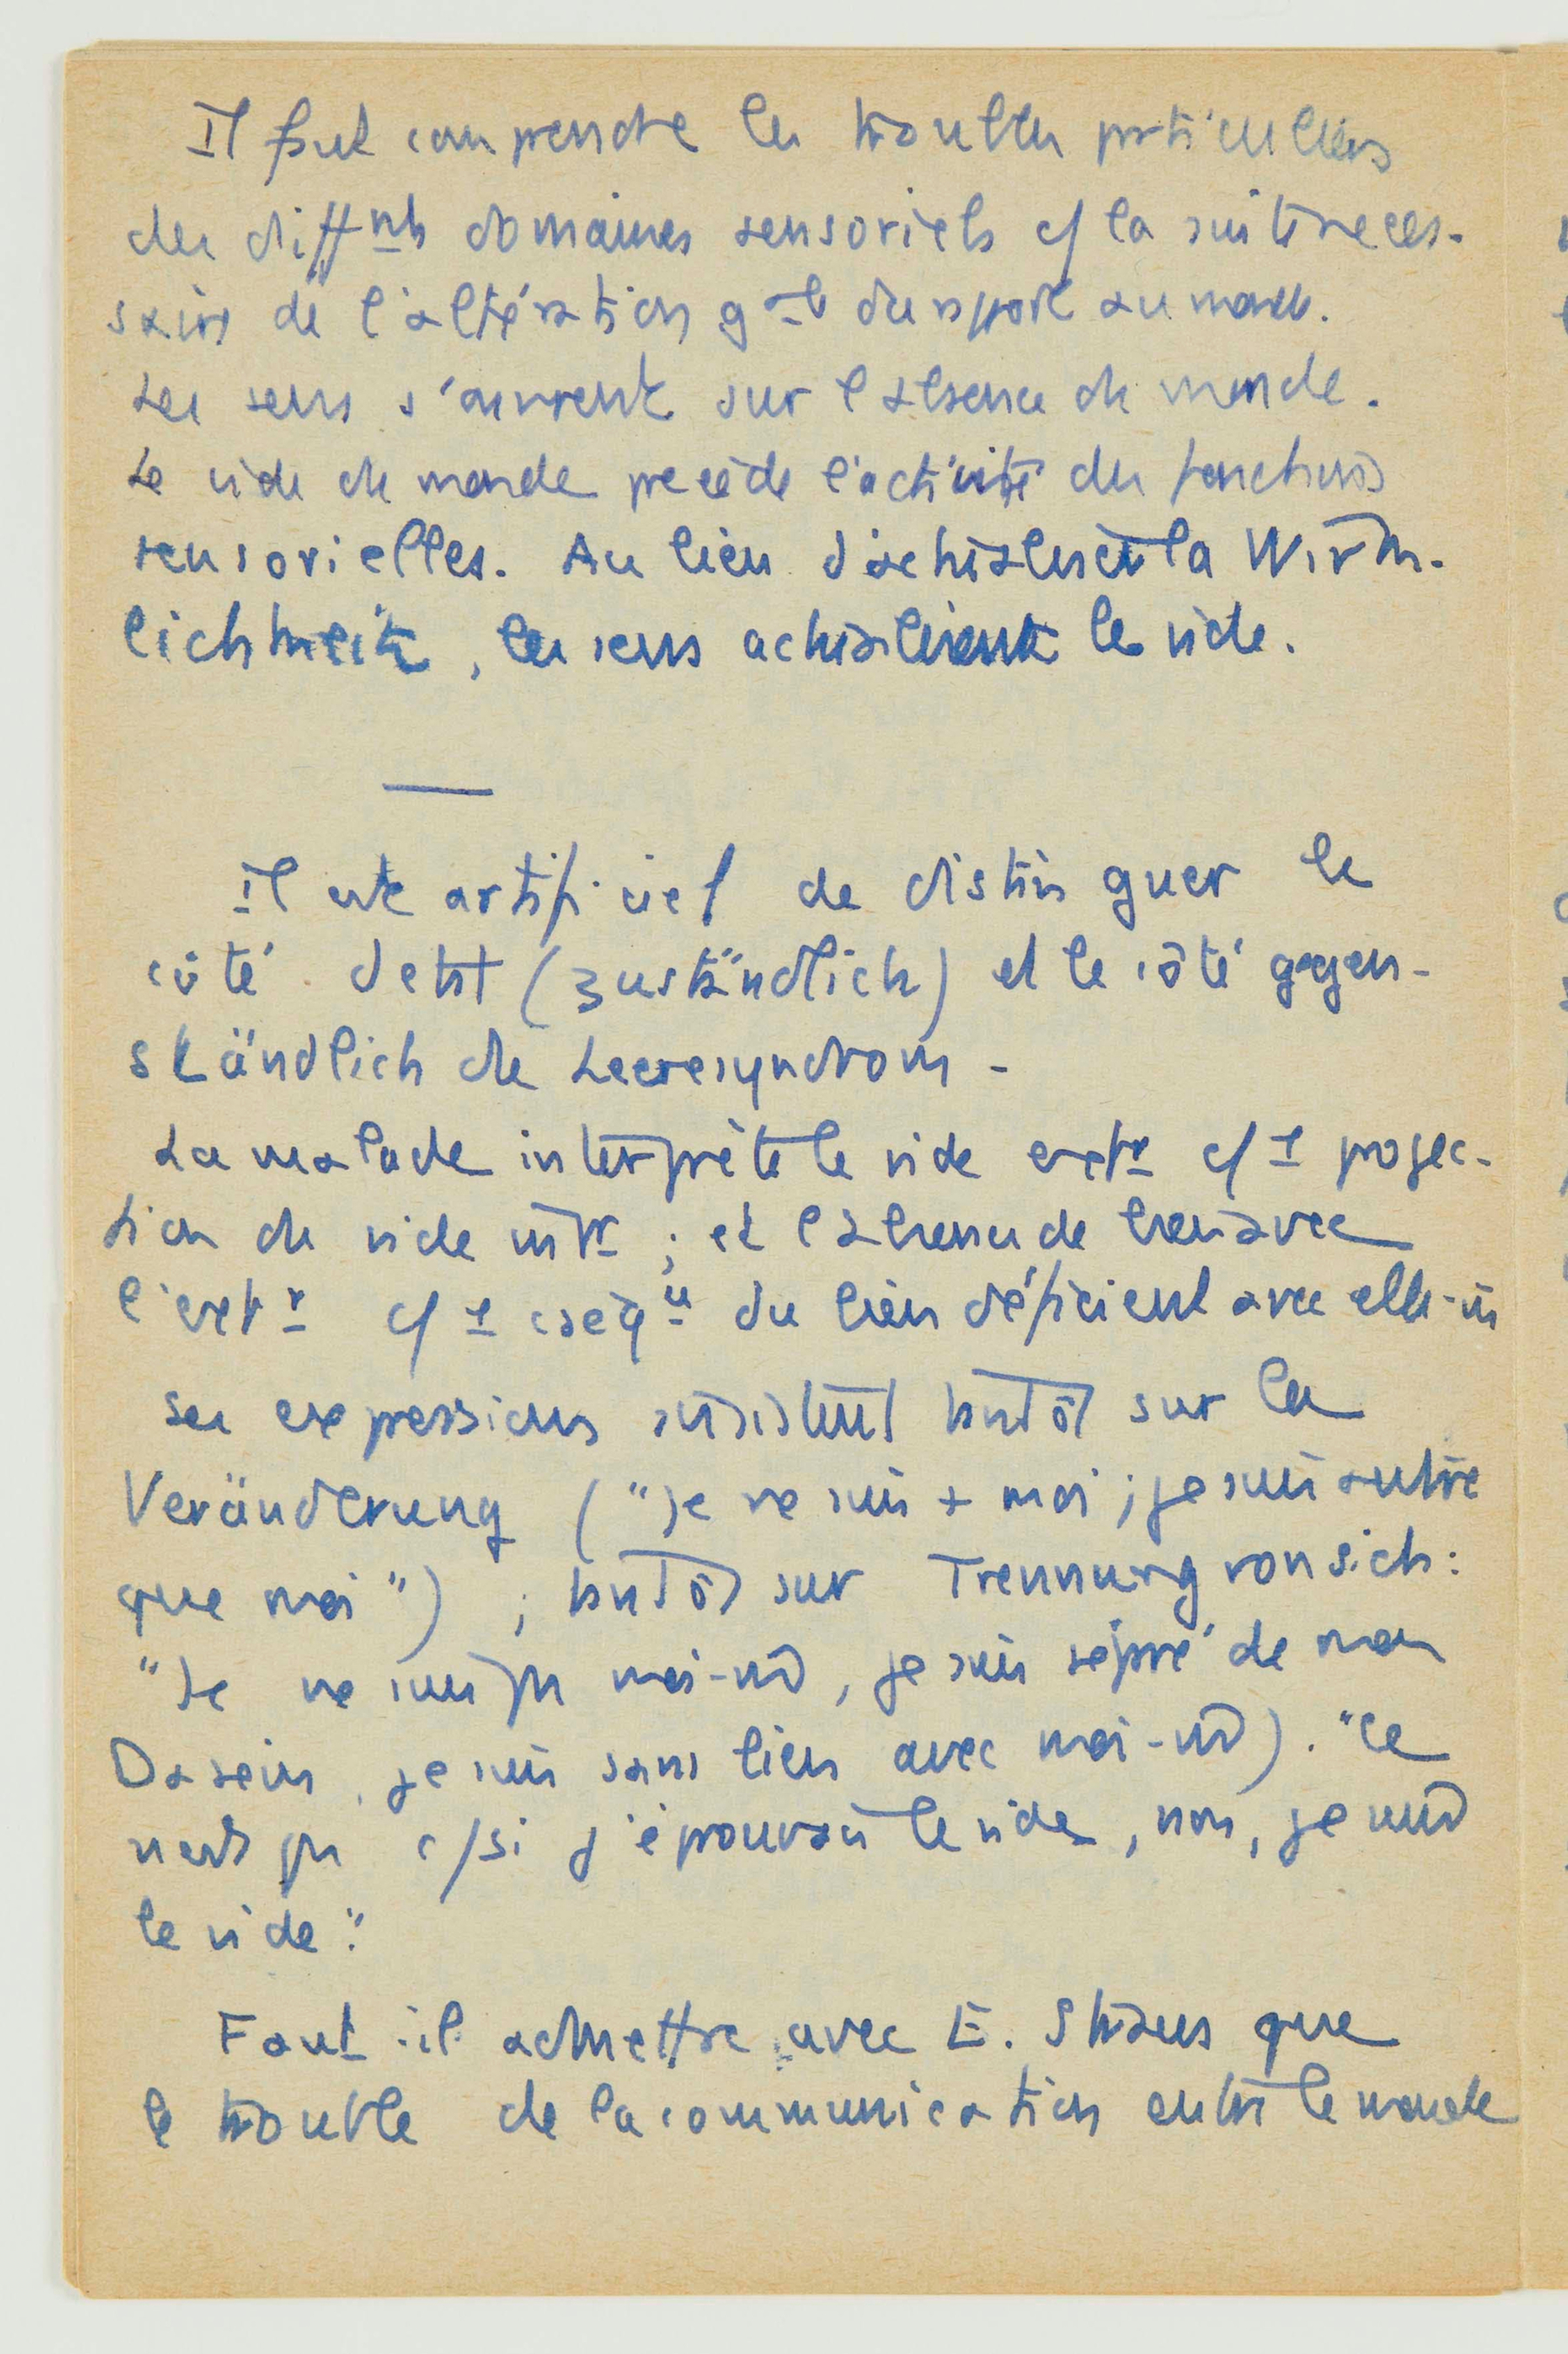 Il faut comprendre les troubles particuliers
des diffnts domaines sensoriels c/ la suite néces-
saire de l'altération gale du rapport au monde.
Les sens s'ouvrent sur l'absence de monde.
Le vide de monde précède l'activité des fonctions
sensorielles. Au lieu d'actualiser la Wirk-
lichkeit, les sens actualisent le vide.
Il est artificiel de distinguer le
côté d'état (zuständlich) et le côté gegen-
ständlich du Leeresyndrom -
La malade interprète le vide extr c/ 1 projec-
tion du vide intr ; et l'absence de lien avec
l'extr c/ 1 cséqu du lien déficient avec elle-m
Ses expressions insistent tantôt sur la
Veränderung ("je ne suis + moi ; je suis autre
que moi") ; tantôt sur Trennung von sich :
"Je ne suis pas moi-m, je suis séparé de mon
Dasein, je suis sans lien avec moi-m). "Ce
n'est pas c/ si j'éprouvais le vide, non, je suis
le vide".
Faut-il admettre avec E. Straus que
le trouble de la communication entre le monde